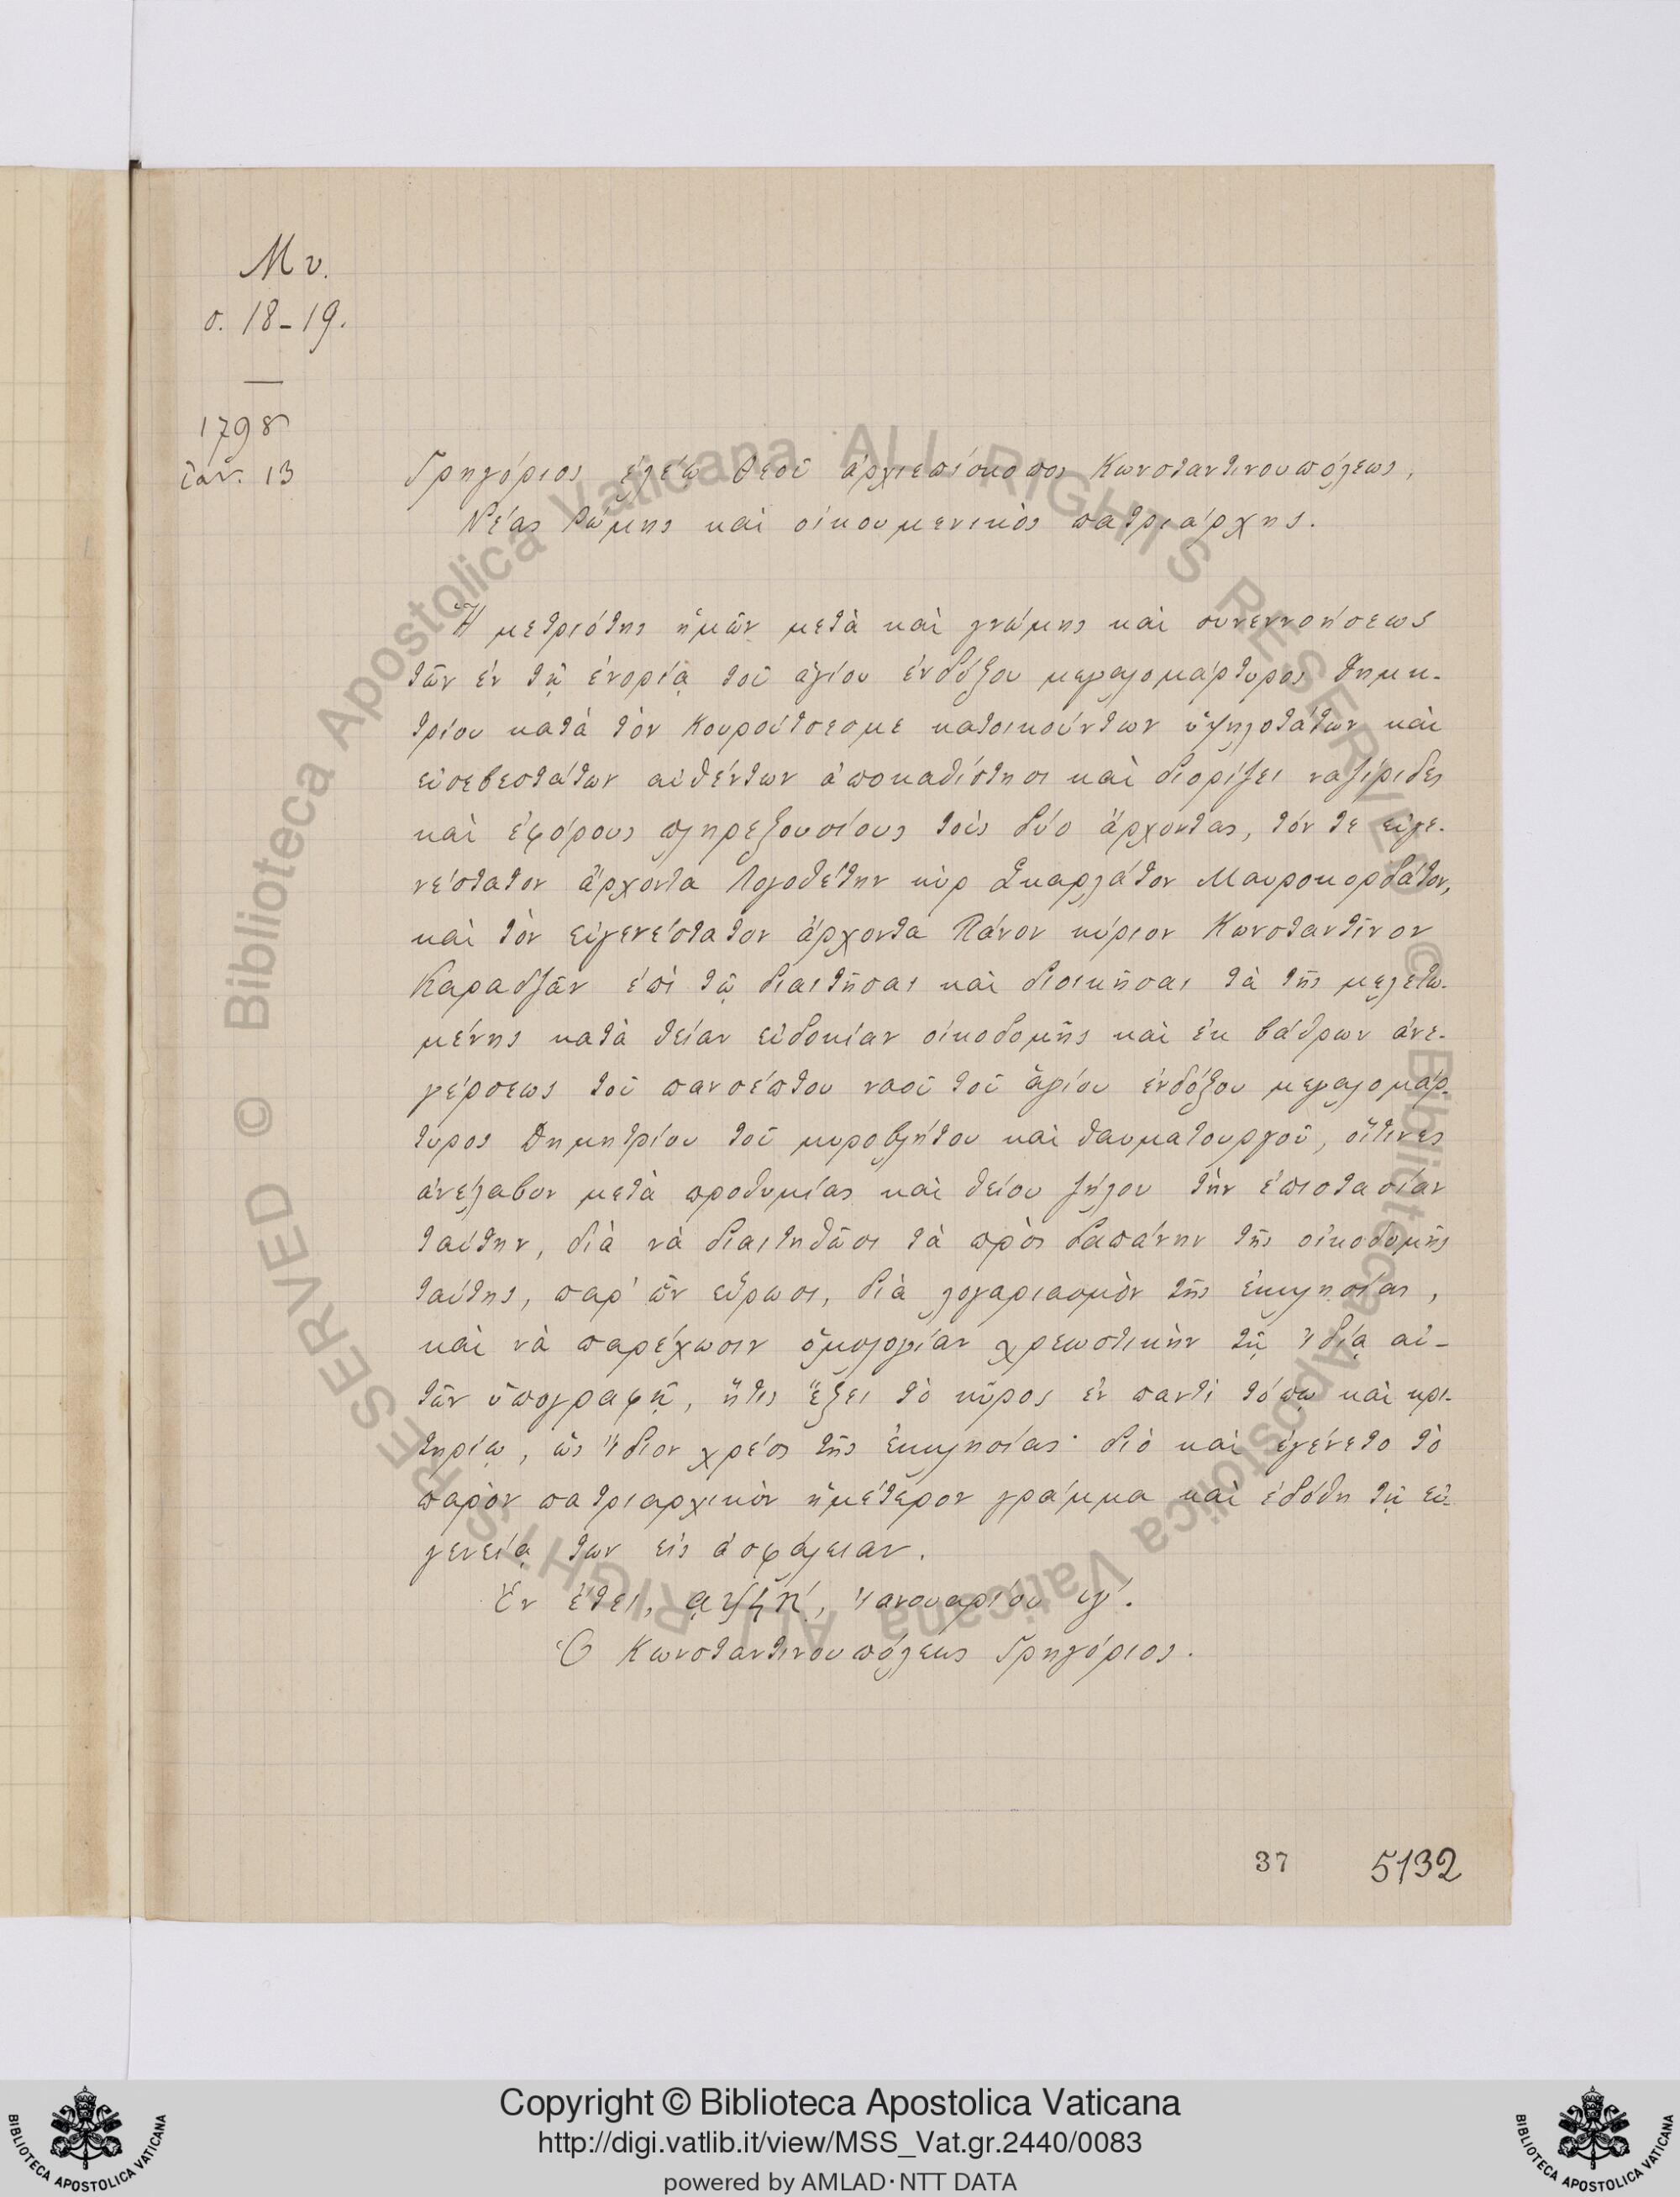 Μ ν.
σ. 18-19.
1798
Ἰαν. 13
Γρηγόριος ἐλέῳ Θεοῦ ἀρχιεπίσκοπος Κωνσταντινουπόλεως,
Νέας Ῥώμης καὶ οἰκουμενικὸς πατριάρχης.
Ἡ μετριότης ἡμῶν μετὰ καὶ γνώμης καὶ συνεννοήσεως
τῶν ἐν τῇ ἐνορίᾳ τοῦ ἁγίου ἐνδόξου μεγαλομάρτυρος Δημη-
τρίου κατὰ τὸν Κουρούτσεσμε κατοικούντων ὑψηλοτάτων καὶ
εὐσεβεστάτων αὐθέντων ἀποκαθίστησι καὶ διορίζει ναζίριδες
καὶ ἐφόρους πληρεξουσίους τοὺς δύο ἄρχοντας, τόν τε εὐγε-
νέστατον ἄρχοντα Λογοθέτην κὺρ Σκαρλάτον Μαυροκορδάτον,
καὶ τὸν εὐγενέστατον ἄρχοντα Πάνον κύριον Κωνσταντῖνον
Καρατζᾶν ἐπὶ τῷ διαιτῆσαι καὶ διοικῆσαι τὰ τῆς μελετω-
μένης κατὰ θείαν εὐδοκίαν οἰκοδομῆς καὶ ἐκ βάθρων ἀνε-
γέρσεως τοῦ πανσέπτου ναοῦ τοῦ ἁγίου ἐνδόξου μεγαλομάρ-
τυρος Δημητρίου τοῦ μυροβλήτου καὶ θαυματουργοῦ, οἵτινες
ἀνέλαβον μετὰ προθυμίας καὶ θείου ζήλου τὴν ἐπιστασίαν
ταύτην, διὰ νὰ διαιτηθῶσι τὰ πρὸς δαπάνην τῆς οἰκοδομῆς
ταύτης, παρ' ὧν εὕρωσι, διὰ λογαριασμὸν τῆς ἐκκλησίας,
καὶ νὰ παρέχωσιν ὁμολογίαν χρεωστικὴν τῇ ἰδίᾳ αὐ-
τῶν ὑπογραφῇ, ἥτις ἕξει τὸ κῦρος ἐν παντὶ τόπῳ καὶ κρι-
τηρίῳ, ὡς ἴδιον χρέος τῆς ἐκκλησίας· διὸ καὶ ἐγένετο τὸ
παρὸν πατριαρχικὸν ἡμέτερον γράμμα καὶ ἐδόθη τῇ εὐ-
γενείᾳ των εἰς ἀσφάλειαν.
Ἐν ἔτει, αψϟη΄, Ἰανουαρίου ιγ΄.
Ὁ Κωνσταντινουπόλεως Γρηγόριος.
37
5132
© Biblioteca Apostolica Vaticana ALL RIGHTS RESERVED © Biblioteca Apostolica Vaticana ALL RIGHTS RESERVED
Copyright © Biblioteca Apostolica Vaticana
http://digi.vatlib.it/view/MSS_Vat.gr.2440/0083
powered by AMLAD·NTT DATA
BIBLIOTECA APOSTOLICA VATICANA
BIBLIOTECA APOSTOLICA VATICANA